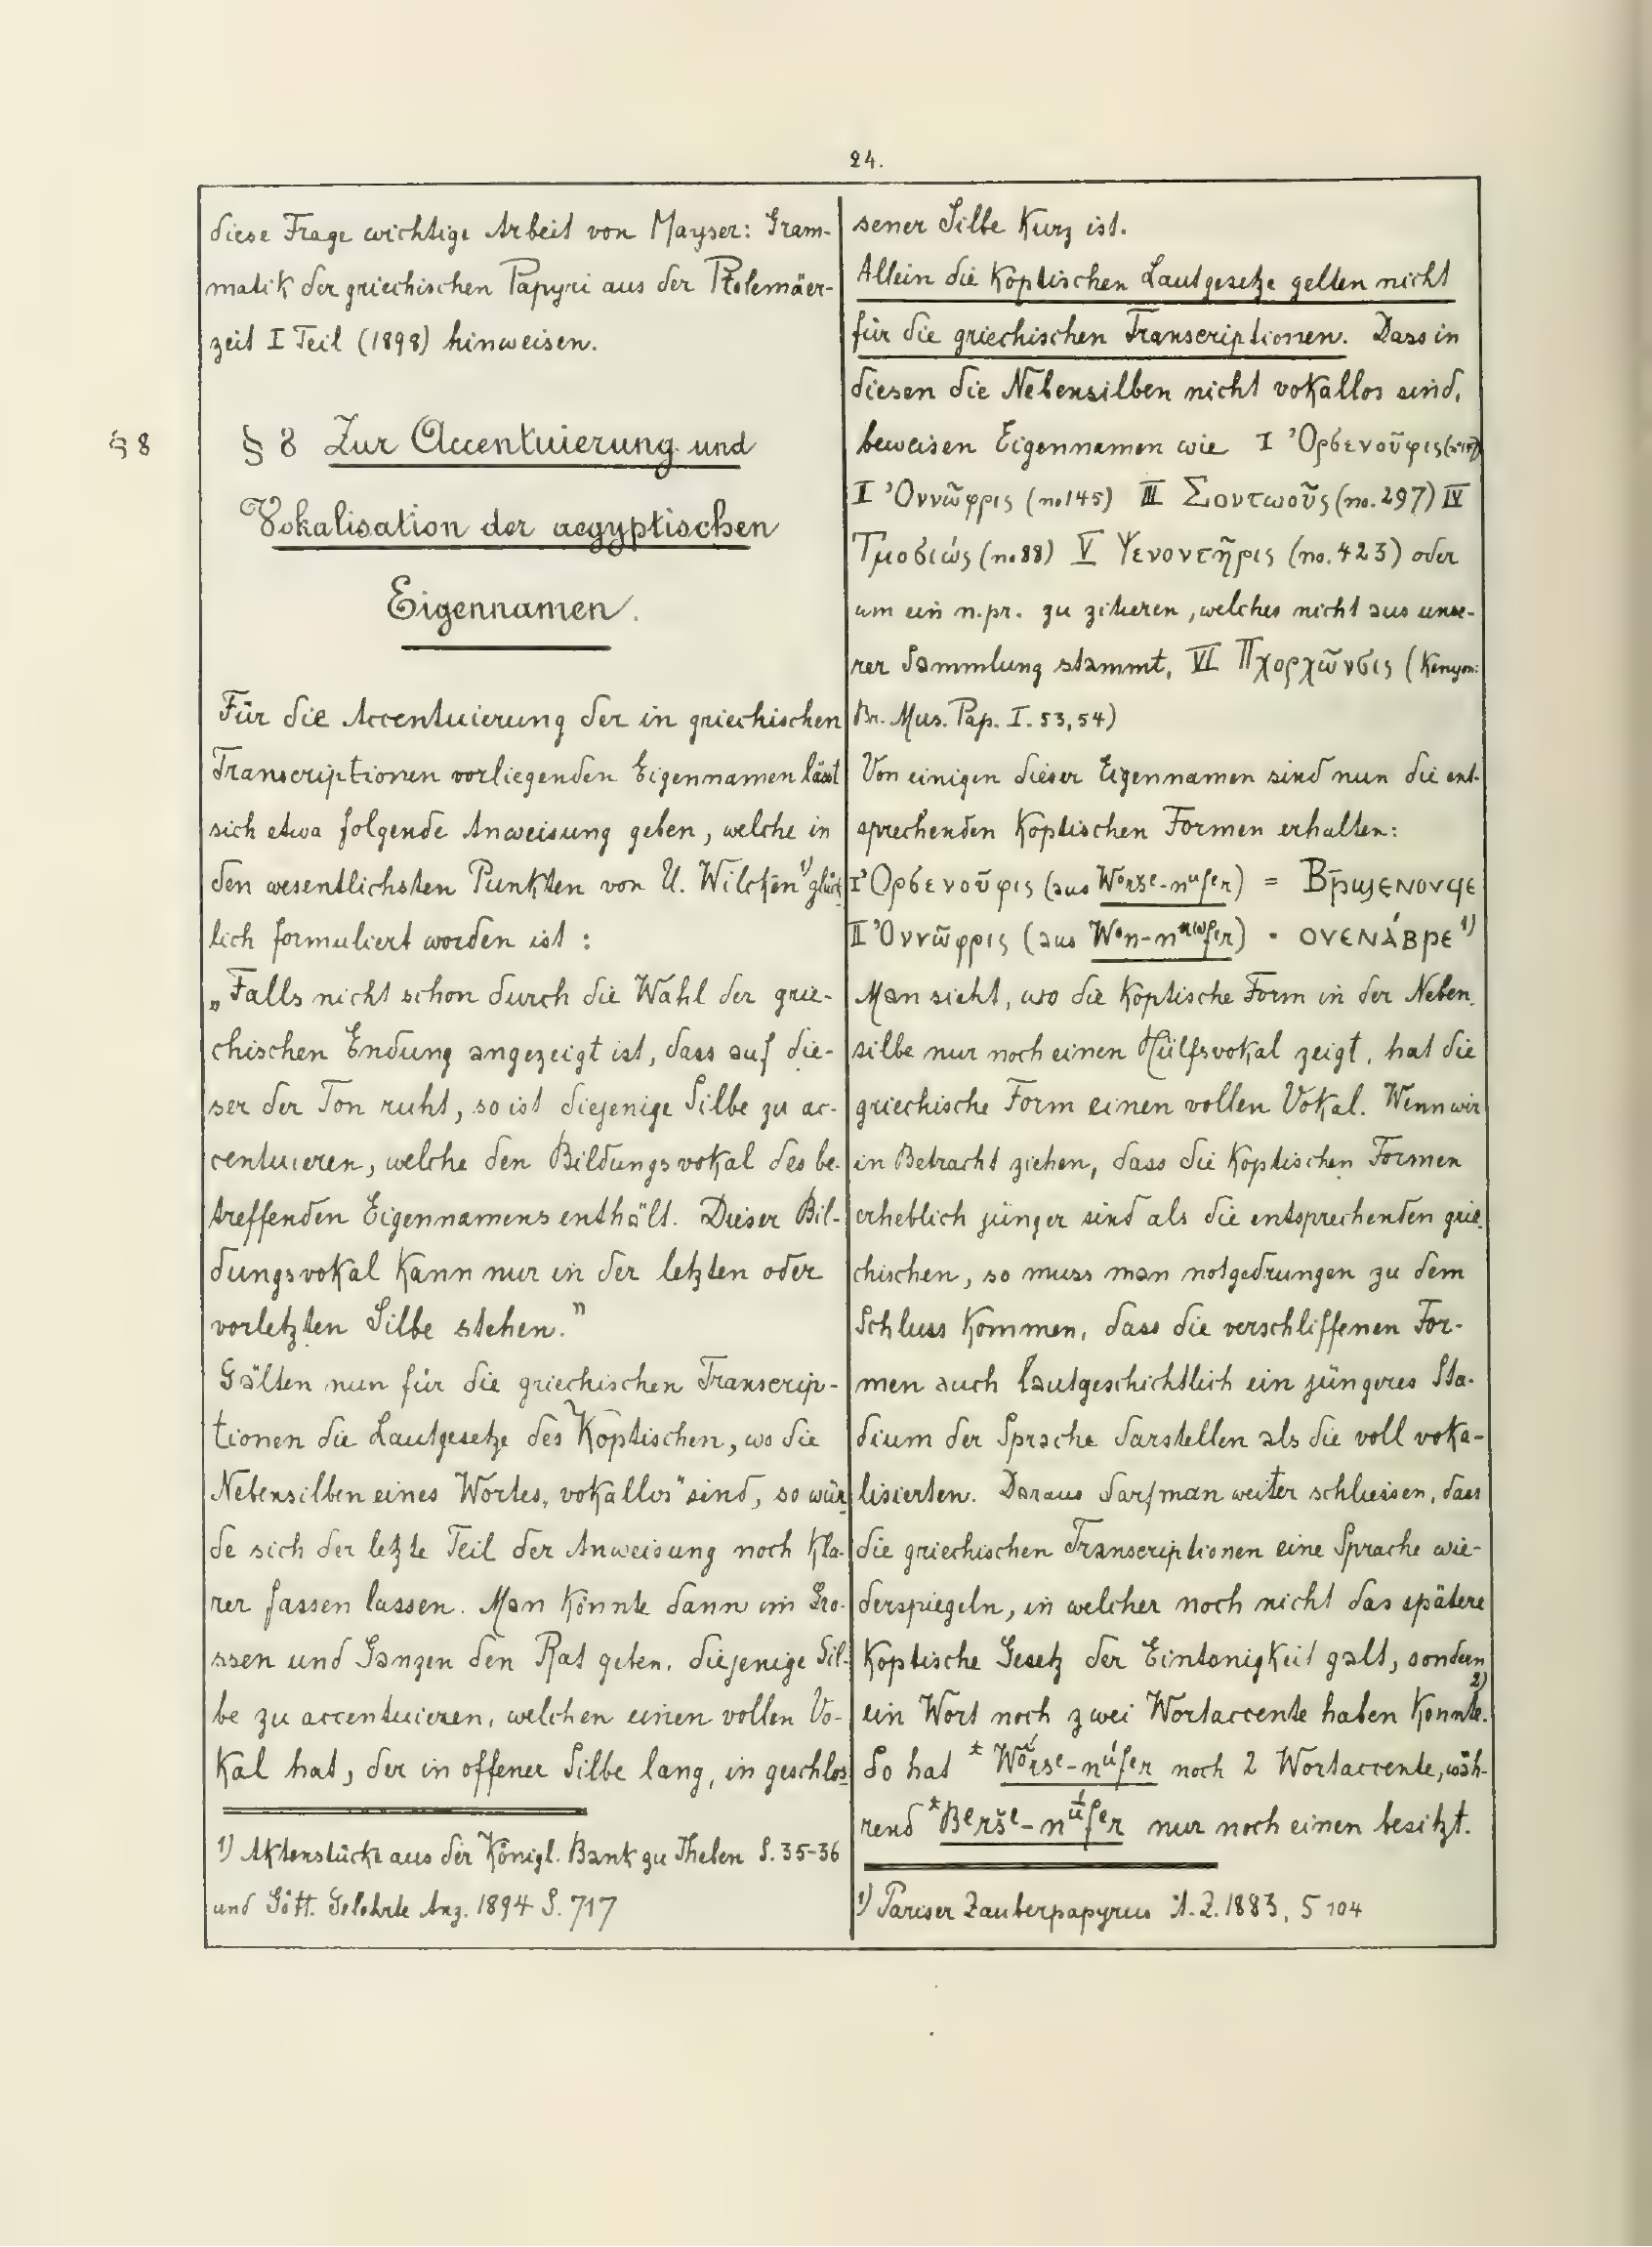 24.
diese Frage wichtige Arbeit von Mayser: Gram-
matik der griechischen Papyri aus der Ptolemäer-
zeit I Teil (1898) hinweisen.
§ 8
§ 8 Zur Accentuierung und
Vokalisation der aegyptischen
Eigennamen.
Für die Accentuierung der in griechischen
Transcriptionen vorliegenden Eigennamen lässt
sich etwa folgende Anweisung geben, welche in
den wesentlichsten Punkten von U. Wilcken 1) glück
lich formuliert worden ist :
„Falls nicht schon durch die Wahl der grie-
chischen Endung angezeigt ist, dass auf die-
ser der Ton ruht, so ist diejenige Silbe zu ac-
centuieren, welche den Bildungsvokal des be-
treffenden Eigennamens enthält. Dieser Bil-
dungsvokal kann nur in der letzten oder
vorletzten Silbe stehen."
Gälten nun für die griechischen Transcrip-
tionen die Lautgesetze des Koptischen, wo die
Nebensilben eines Wortes „vokallos" sind, so wür
de sich der letzte Teil der Anweisung noch kla-
rer fassen lassen. Man könnte dann im Gro-
ssen und Ganzen den Rat geben, diejenige Sil-
be zu accentuieren, welchen einen vollen Vo-
kal hat, der in offener Silbe lang, in geschlos
1) Aktenstücke aus der Königl. Bank zu Theben S. 35-36
und Gött. Gelehrte Anz. 1894 S. 717
sener Silbe kurz ist.
Allein die koptischen Lautgesetze gelten nicht
für die griechischen Transcriptionen. Dass in
diesen die Nebensilben nicht vokallos sind,
beweisen Eigennamen wie I Ὀρσενοῦφις
I Ὀννῶφρις (no 145) III Σοντωοῦς (no. 297) IV
Τμοσιώς (no 88) V Ψενοντῆρις (no. 423) oder
um ein n.pr. zu zitieren, welches nicht aus unse-
rer Sammlung stammt, VI Πχορχῶνσις (Kenyon:
Br. Mus. Pap. I. 53, 54)
Von einigen dieser Eigennamen sind nun die ent-
sprechenden koptischen Formen erhalten:
I Ὀρσενοῦφις (aus Worše-nufer) = Ⲃⲣ̄ϣⲉⲛⲟⲩϥⲉ
II Ὀννῶφρις (aus Won-nnōfer) = ⲟⲩⲉⲛⲁ́ⲃⲣⲉ 1)
Man sieht, wo die koptische Form in der Neben-
silbe nur noch einen Hülfsvokal zeigt, hat die
griechische Form einen vollen Vokal. Wenn wir
in Betracht ziehen, dass die koptischen Formen
erheblich jünger sind als die entsprechenden grie-
chischen, so muss man notgedrungen zu dem
Schluss kommen, dass die verschliffenen For-
men auch lautgeschichtlich ein jüngeres Sta-
dium der Sprache darstellen als die voll voka-
lisierten. Daraus darf man weiter schliessen, dass
die griechischen Transcriptionen eine Sprache wie-
derspiegeln, in welcher noch nicht das spätere
koptische Gesetz der Eintonigkeit galt, sondern
ein Wort noch zwei Wortaccente haben konnte. 2)
So hat * Wórše-núfer noch 2 Wortaccente, wäh-
rend *Berše-núfer nur noch einen besitzt.
1) Pariser Zauberpapyrus Ä. Z. 1883, S 104